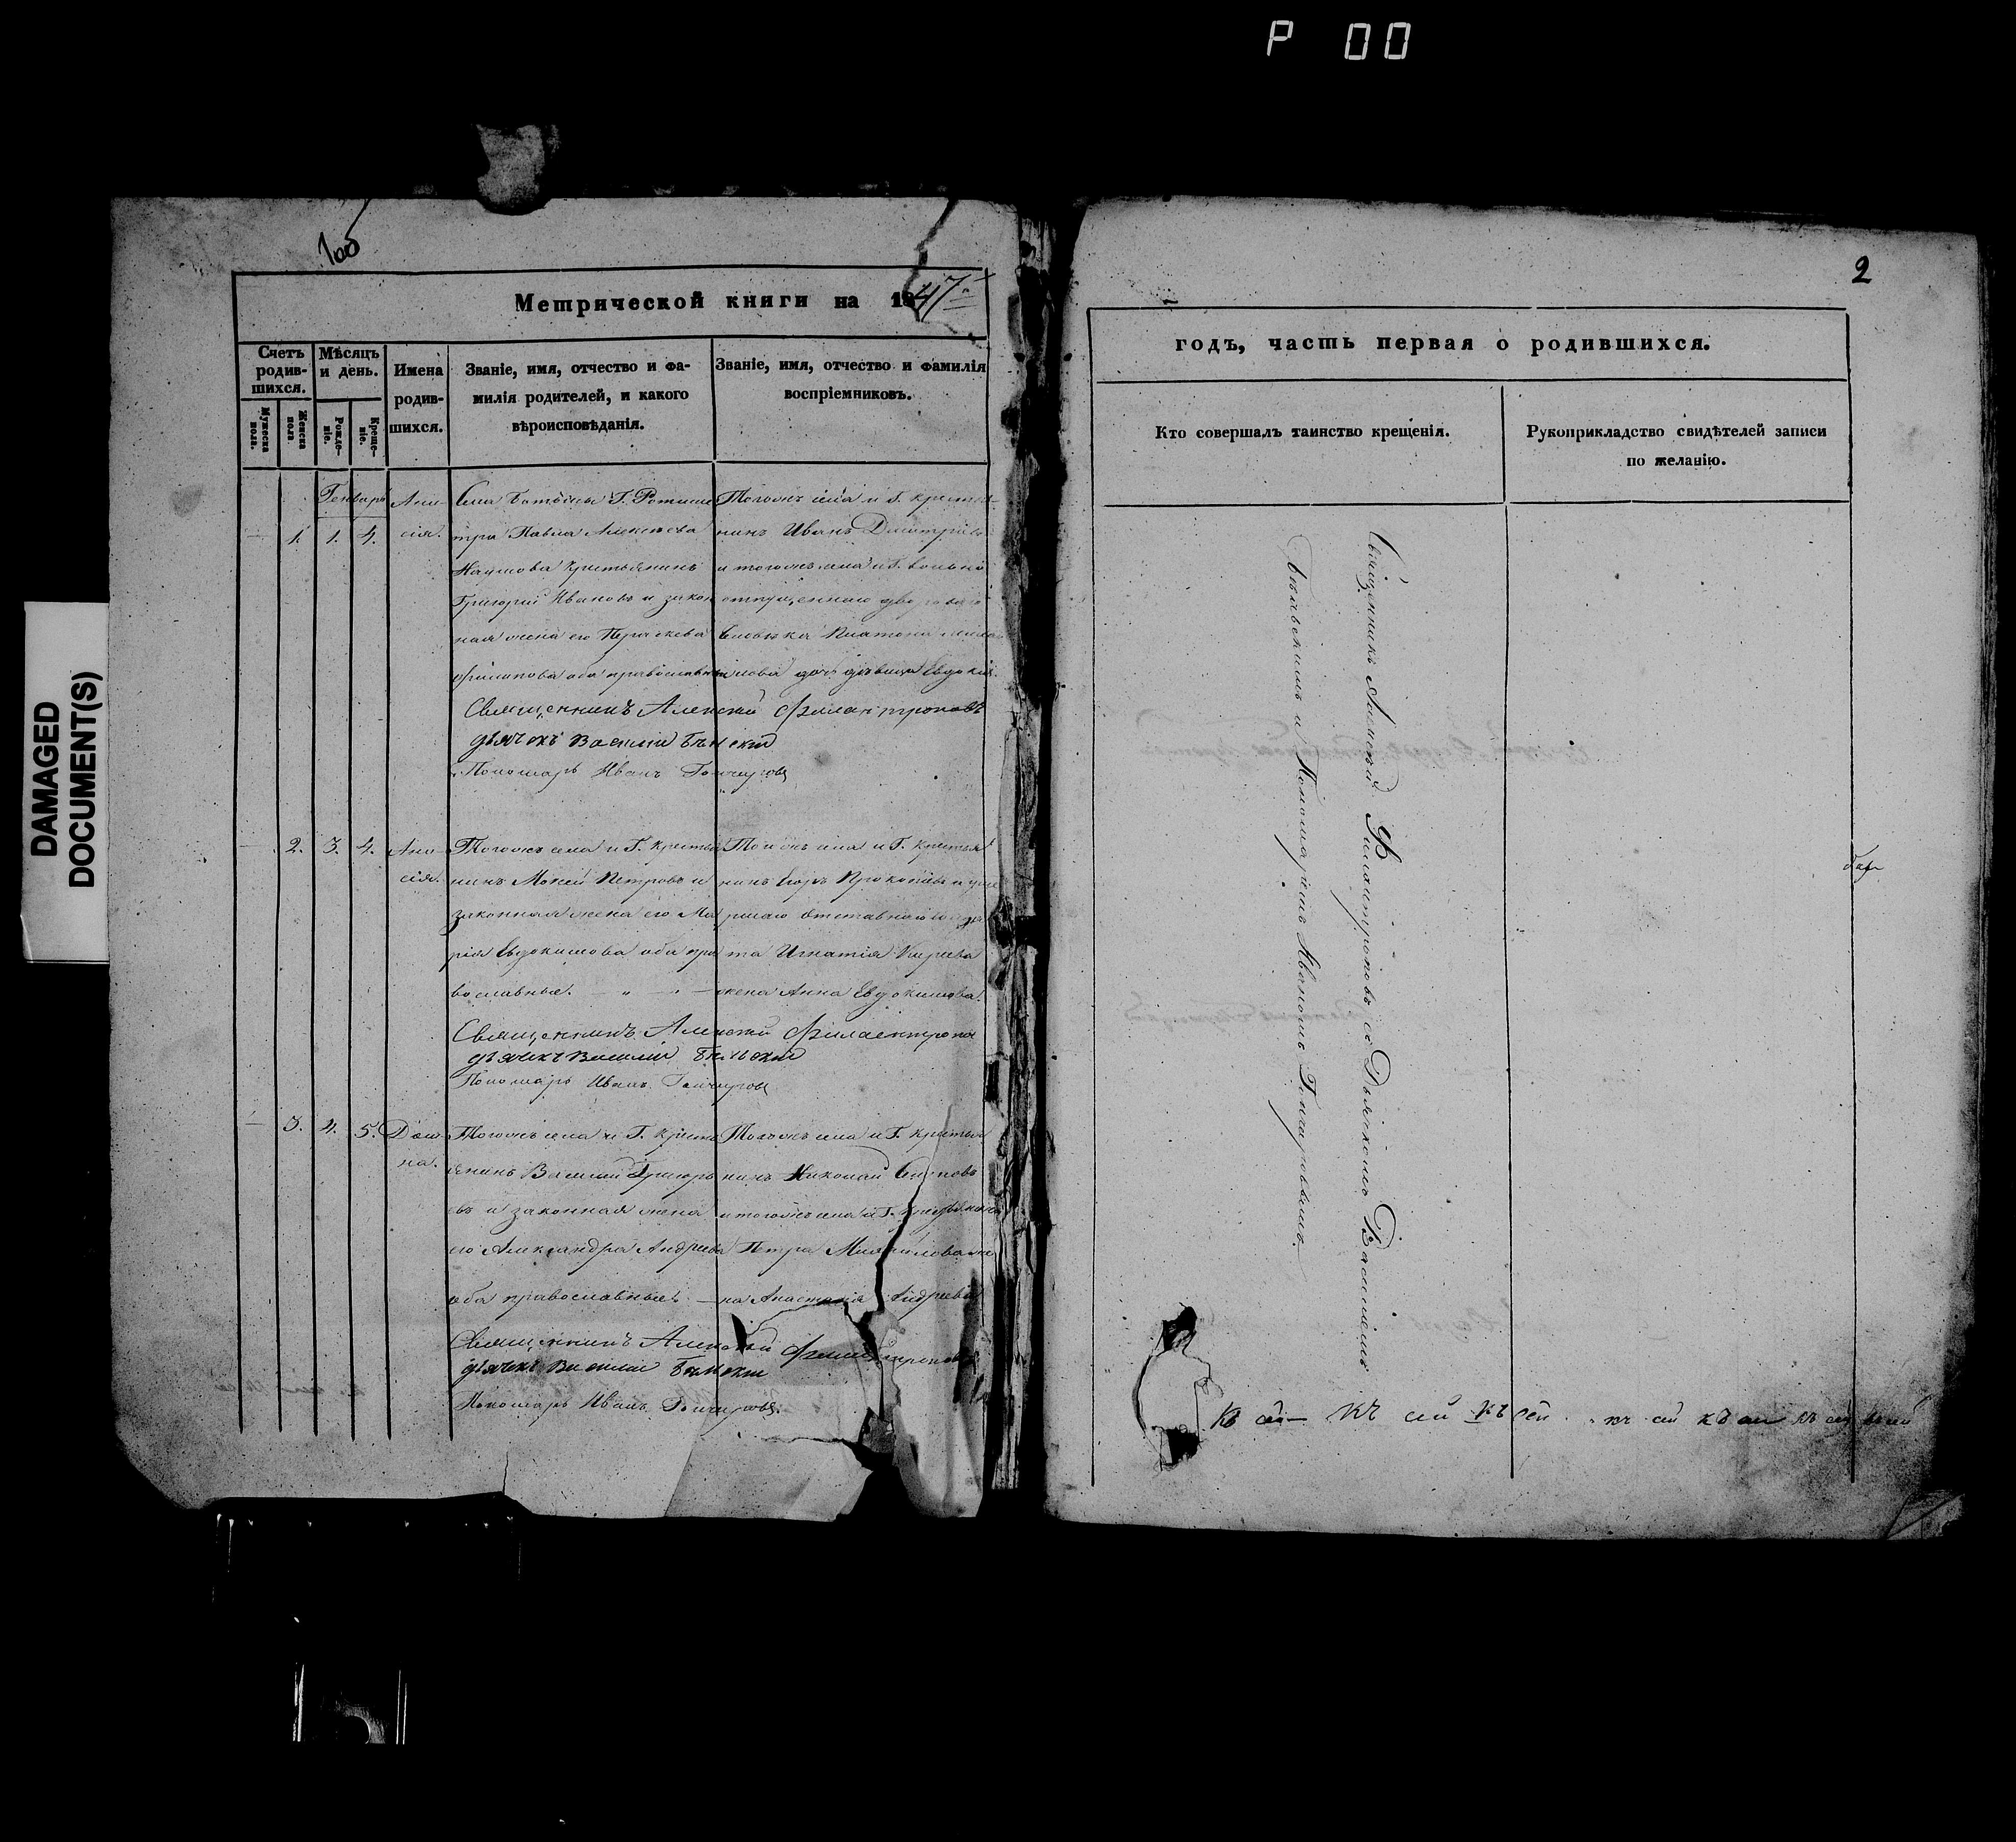 P 00
DAMAGED
DOCUMENT(S)
1об
Метрической книги на 1847
Счетъ родив-шихся.
Мужеска пола.
Женска пола.
Мѣсяцъ и день.
Рожде-ніе.
Креще-ніе.
Имена родив-шихся.
Званіе, имя, отчество и фа-
милія родителей, и какого
вѣроисповѣданія.
Званіе, имя, отчество и фамилія
воспріемниковъ.
Генварь
1. 1. 4.
Ани-
сія.
Села
тра Павла Алексѣева
Наумова крестьянинъ
Григорій Ивановъ и закон
ная жена его Параскева
Филипова оба православные
Тогожъ села и Г. крестья-
нинъ Иванъ Дмитріевъ
и тогожъ села и Г. вольно
отпущеннаго двороваго
человѣка Платона
дочь дѣвица Евдокія.
Священникъ Алексѣй Филантроповъ
дьячекъ Василій Бѣльскій
Пономарь Иванъ
2. 3. 4.
Ани-
сія.
Тогожъ села и Г. крестья
нинъ Мокей Петровъ и
законная жена его Ма
рія Евдокимова оба пра
вославные.
Тогожъ села и Г. крестья
нинъ Егоръ Прокопіевъ и уме
ршаго отставнаго солда
та Игнатія Киреева
жена Анна Евдокимова.
Священникъ Алексѣй Филантроповъ
дьячекъ Василій Бѣльскій
Пономарь Иванъ
3. 4. 5.
Дом-
на.
Тогожъ села и Г. кресть
янинъ Василій Григорь
евъ и законная жена
его Александра Андреева
оба православные.
Тогожъ села и Г. крестья
нинъ Николай
и тогожъ села и Г. крестьянина
Петра Михайлова же
на Анастасія Андреева
Священникъ Алексѣй Филантроповъ
дьячекъ Василій Бѣльскій
Пономарь Иванъ
2
годъ, часть первая о родившихся.
Кто совершалъ таинство крещенія.
Рукоприкладство свидѣтелей записи
по желанію.
Священникъ Алексѣй Филантроповъ съ Дьячкомъ Василіемъ
Бѣльскимъ и Пономаремъ Иваномъ
Къ сей къ сей къ сей къ сей къ сей къ сей